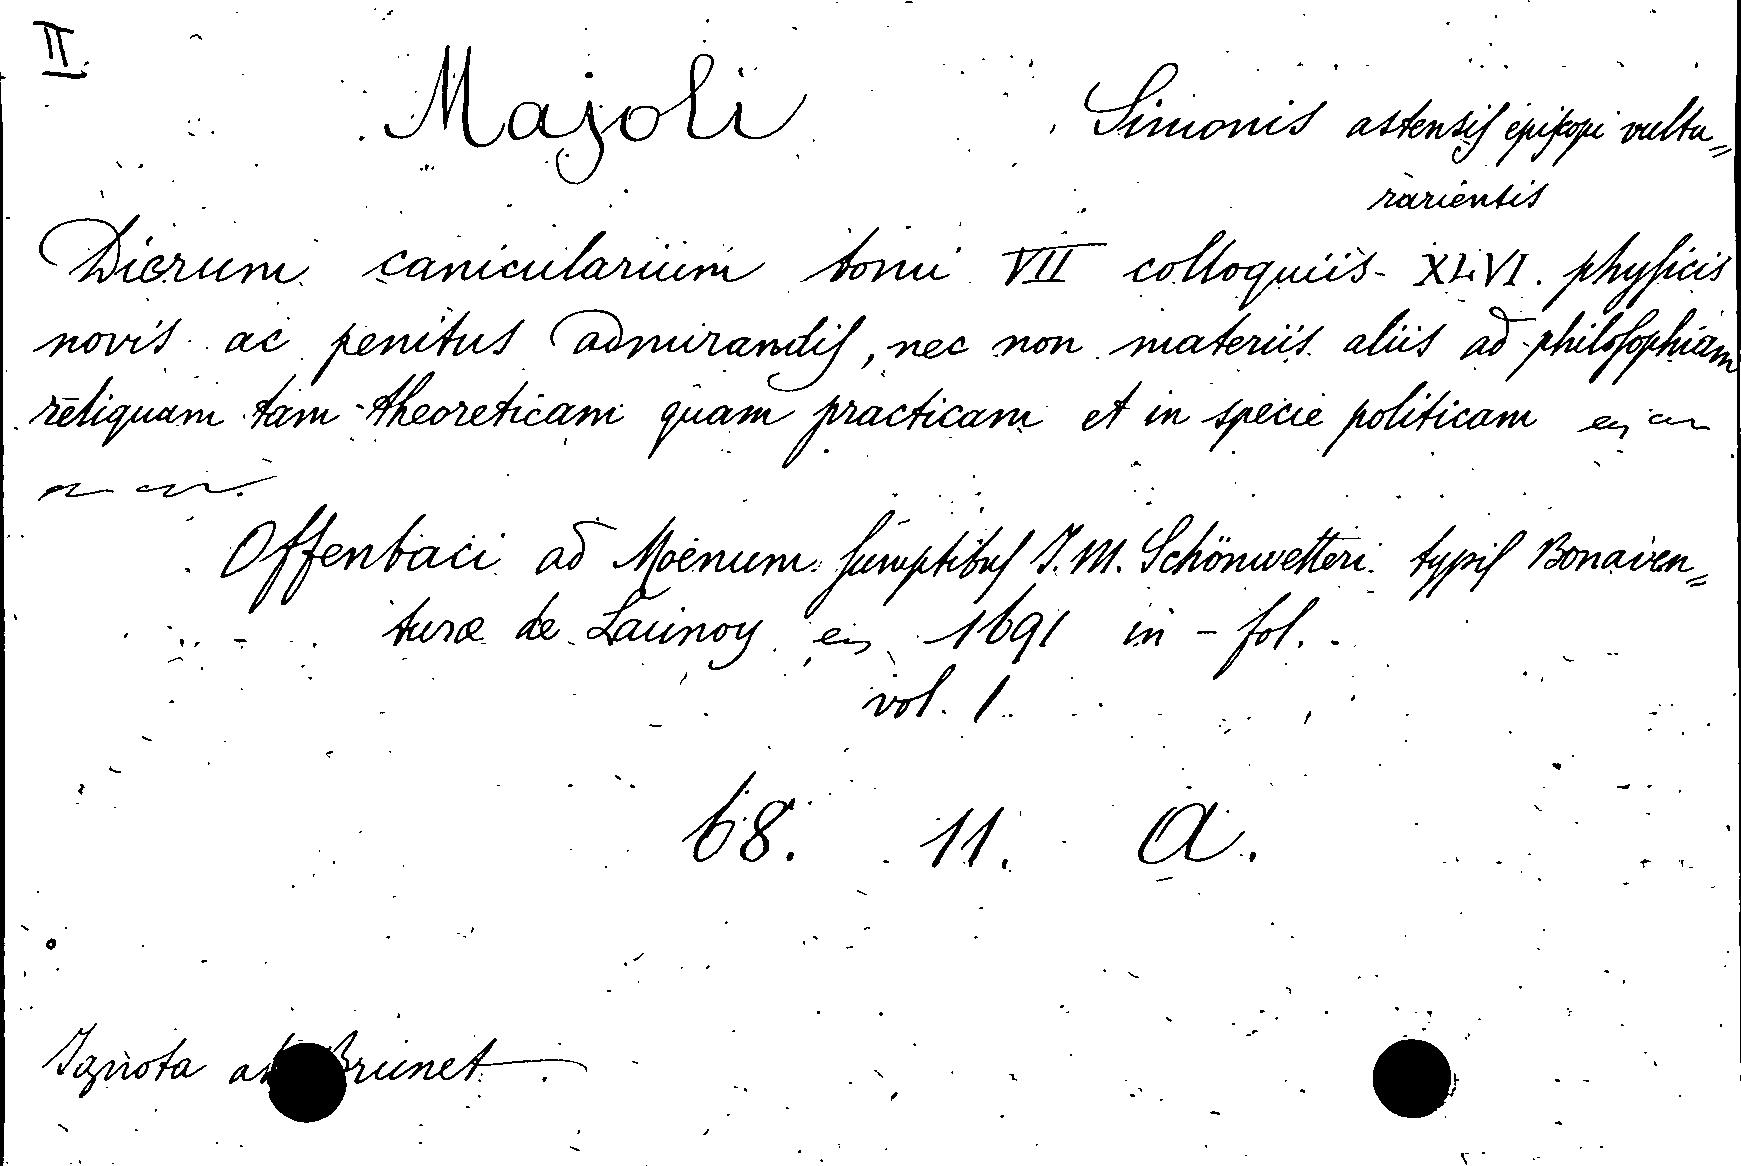 II.
Majoli Simonis astensis episkopi vultu„
rariensis
Dierum canicularium tomi VII colloquiis XLVI. physicis
novis ac penitus admirandis, nec non materiis aliis ad philosophiam
reliquam tam theoreticam quam practicam et in specie politicam
Offenbaci ad Moenum sumptibus J. M. Schönwetteri typis Bonaven„
turæ de Launoy 1691 in-fol.
vol. 1
68. 11. A.
Ignota Brunet